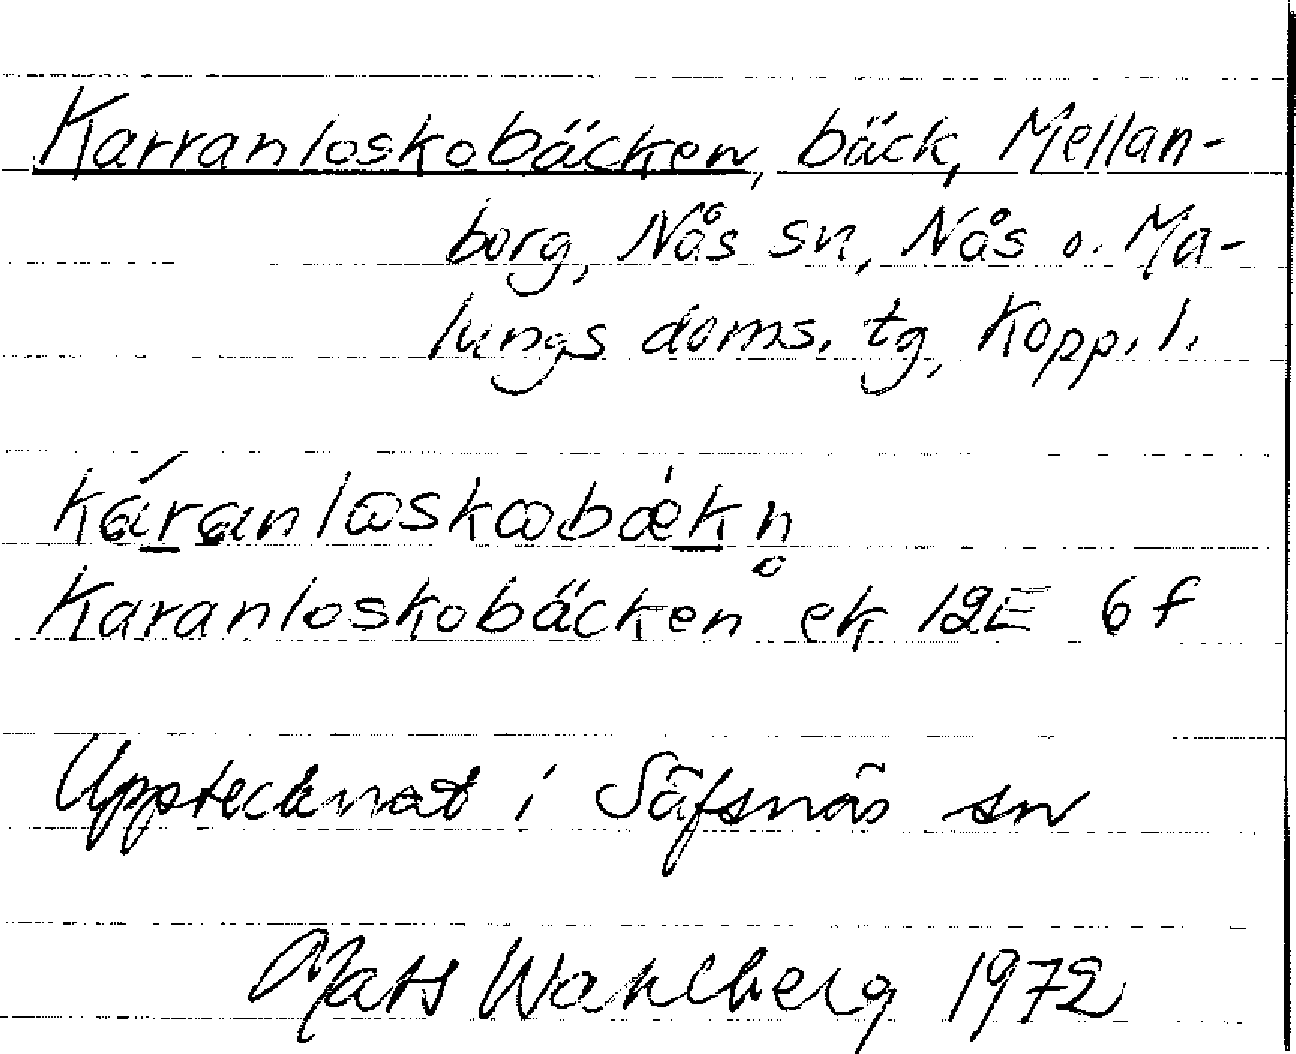 Karranloskobäcken, bäck, Mellan-
borg, Nås sn, Nås o. Ma-
lungs doms. tg, Kopp. l.
káranlɷskɷbæ̀kn̥
Karanloskobäcken ek 12E 6f
Upptecknat i Säfsnäs sn
Mats Wahlberg 1972